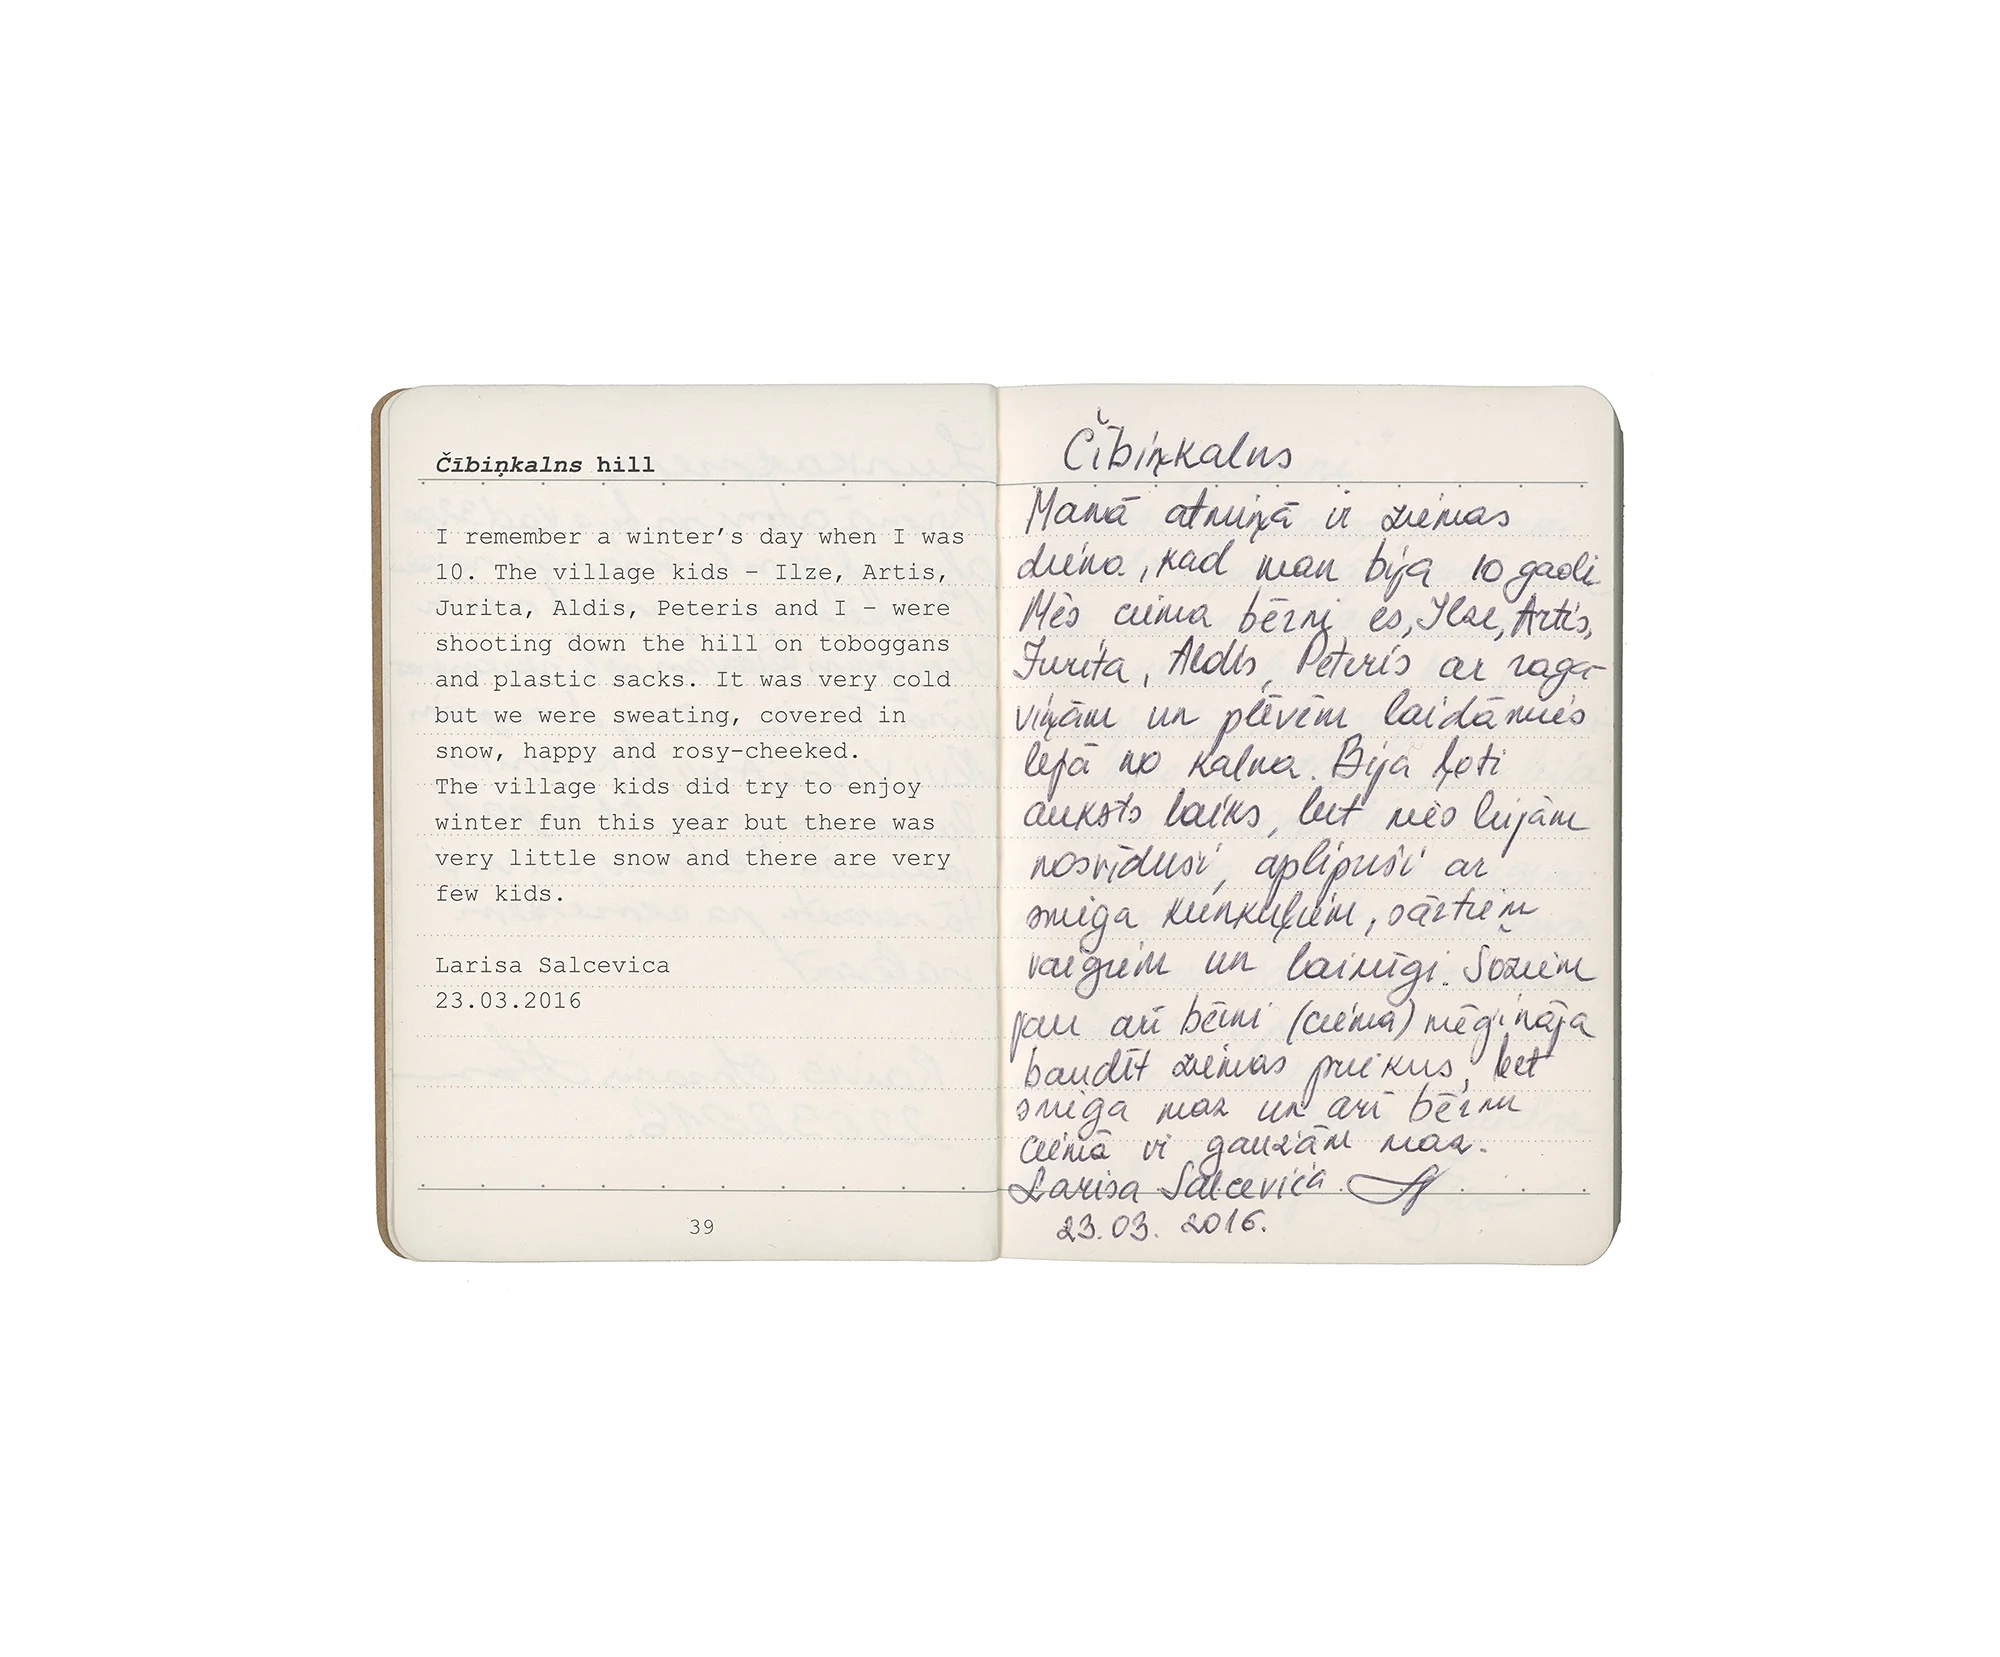 Čībiņkalns hill
I remember a winter's day when I was
10. The village kids – Ilze, Artis,
Jurita, Aldis, Peteris and I – were
shooting down the hill on toboggans
and plastic sacks. It was very cold
but we were sweating, covered in
snow, happy and rosy-cheeked.
The village kids did try to enjoy
winter fun this year but there was
very little snow and there are very
few kids.
Larisa Salcevica
23.03.2016
39
Čībiņkalns
Manā atmiņā ir ziemas
diena, kad man bija 10 gadi.
Mēs ciema bērni es, Ilze, Artis,
Jurita, Aldis, Peteris ar raga-
viņām un plēvēm laidāmies
lejā no kalna. Bija ļoti
auksts laiks, bet mēs bijām
nosvīduši, aplipuši ar
sniga kunkuļiem, sārtiem
vaigiem un laimīgi. Šoziem
gan arī bērni (ciema) mēģināja
baudīt ziemas priekus, bet
sniga maz un arī bērnu
ciemā ir gaužām maz.
Larisa Salcevica
23.03. 2016.